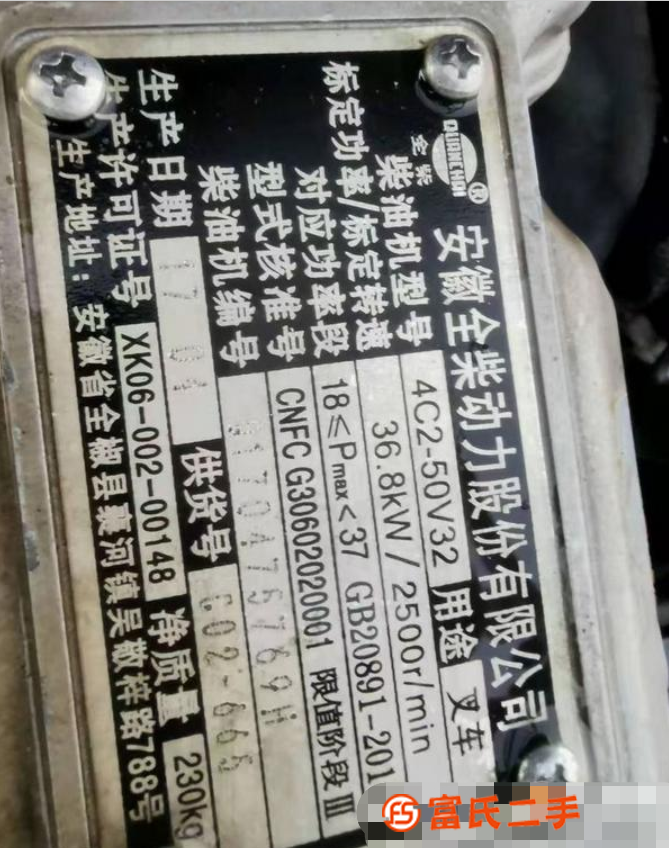 QUANCHAI
全柴
安徽全柴动力股份有限公司
柴油机型号 4C2-50V32 用途 叉车
标定功率/标定转速 36.8kW/2500r/min
对应功率段 18≤Pmax<37 GB20891-201
型式核准号 CNFC G30602020001 限值阶段 III
柴油机编号
生产日期 17 04 供货号 G02-665
生产许可证号 XK06-002-00148 净质量 230kg
生产地址: 安徽省全椒县襄河镇吴敬梓路788号
富氏二手